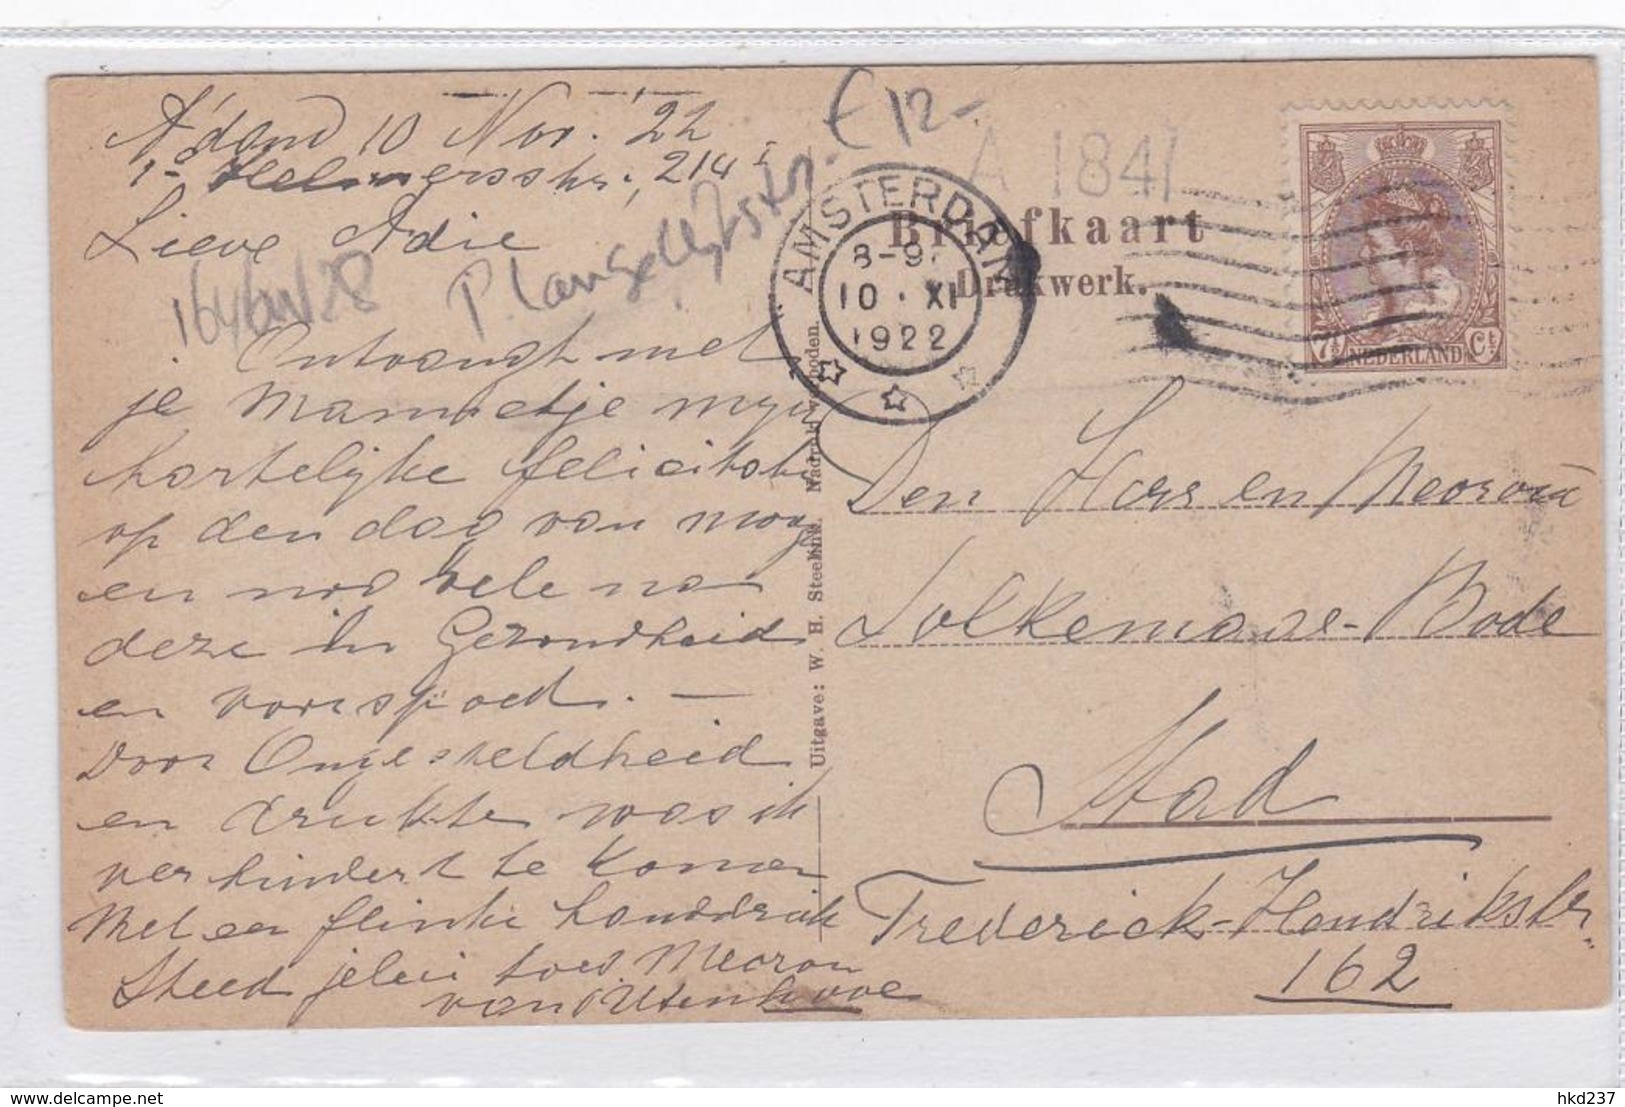 A'dam 10 Nov. '22
1e Helmersstr. 214 I
Lieve Adie
€ 12-
A 1841
P. Lange Leijdsestr.
AMSTERDAM
8-9
10 · XI
1922
Briefkaart
Drukwerk.
7½ NEDERLAND Ct
Ontvangt met
je Mannetje mijn
hartelijke felicitatie
op den dag van morgen
en nog vele na
deze in Gezondheid
en voorspoed. —
Door Ongesteldheid
en drukte was ik
verhinderd te komen
Met een flinke handdruk
Steed jelui toeg. Mevrou
van Utenhove
Uitgave: W. H. Steelink. Nadruk verboden.
Den Heer en Mevrouw
Lolkema-Bode
Stad
Frederick-Hendrikstr.
162
delcampe.net
hkd237